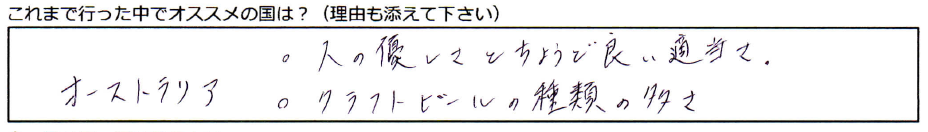 これまで行った中でオススメの国は？（理由も添えて下さい）
。人の優しさとちょうど良い適当さ.
オーストラリア
。クラフトビールの種類の多さ